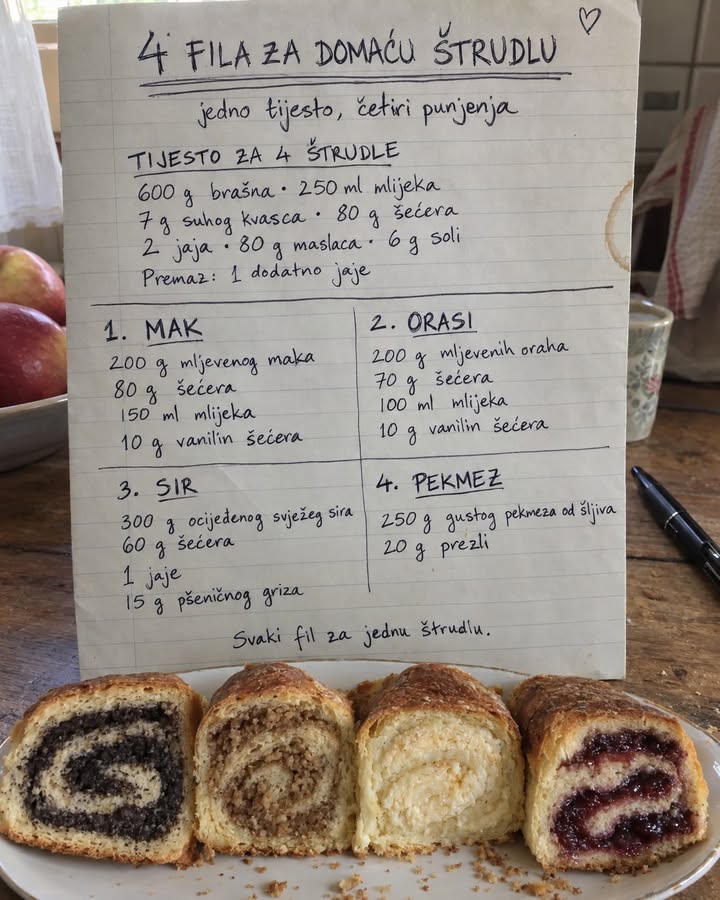 4 FILA ZA DOMAĆU ŠTRUDLU
jedno tijesto, četiri punjenja
TIJESTO ZA 4 ŠTRUDLE
600 g brašna • 250 ml mlijeka
7 g suhog kvasca • 80 g šećera
2 jaja • 80 g maslaca • 6 g soli
Premaz: 1 dodatno jaje
1. MAK
200 g mljevenog maka
80 g šećera
150 ml mlijeka
10 g vanilin šećera
2. ORASI
200 g mljevenih oraha
70 g šećera
100 ml mlijeka
10 g vanilin šećera
3. SIR
300 g ocijeđenog svježeg sira
60 g šećera
1 jaje
15 g pšeničnog griza
4. PEKMEZ
250 g gustog pekmeza od šljiva
20 g prezli
Svaki fil za jednu štrudlu.